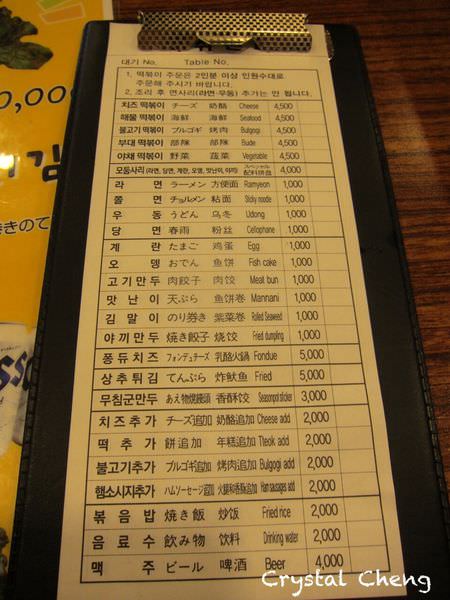 대기 No. Table No.
1. 떡볶이 주문은 2인분 이상 인원수대로
주문해 주시기 바랍니다.
2. 조리 후 면사리(라면·우동) 추가는 안 됩니다.
치즈 떡볶이 チーズ 奶酪 Cheese 4,500
해물 떡볶이 海鮮 海鮮 Seafood 4,500
불고기 떡볶이 プルゴギ 烤肉 Bulgogi 4,500
부대 떡볶이 部隊 部隊 Bude 4,500
야채 떡볶이 野菜 蔬菜 Vegetable 4,500
모둠사리 (라면, 당면, 계란, 오뎅, 맛난이, 야끼) スペシャル 配料拼盘 4,000
라면 ラーメン 方便面 Ramyeon 1,000
쫄면 チョルメン 粘面 Sticky noodle 1,000
우동 うどん 乌冬 Udong 1,000
당면 春雨 粉丝 Cellophane 1,000
계란 たまご 鸡蛋 Egg 1,000
오뎅 おでん 鱼饼 Fish cake 1,000
고기만두 肉餃子 肉饺 Meat bun 1,000
맛난이 天ぷら 鱼饼卷 Mannani 1,000
김말이 のり巻き 紫菜卷 Rolled Seaweed 1,000
야끼만두 焼き餃子 烧饺 Fried dumpling 1,000
퐁듀치즈 フォンデュチーズ 乳酪火鍋 Fondue 5,000
상추튀김 てんぷら 炸鱿鱼 Fried 5,000
무침군만두 あえ物焼饅頭 香酥饺 Seasonpot sticker 3,000
치즈추가 チーズ追加 奶酪追加 Cheese add 2,000
떡추가 餅追加 年糕追加 Tteok add 2,000
불고기추가 プルゴギ追加 烤肉追加 Bulgogi add 2,000
햄소시지추가 ハムソーセージ追加 火腿和香肠追加 Ham sausages add 2,000
볶음밥 焼き飯 炒饭 Fried rice 2,000
음료수 飲み物 饮料 Drinking water 2,000
맥주 ビール 啤酒 Beer 4,000
Crystal Cheng